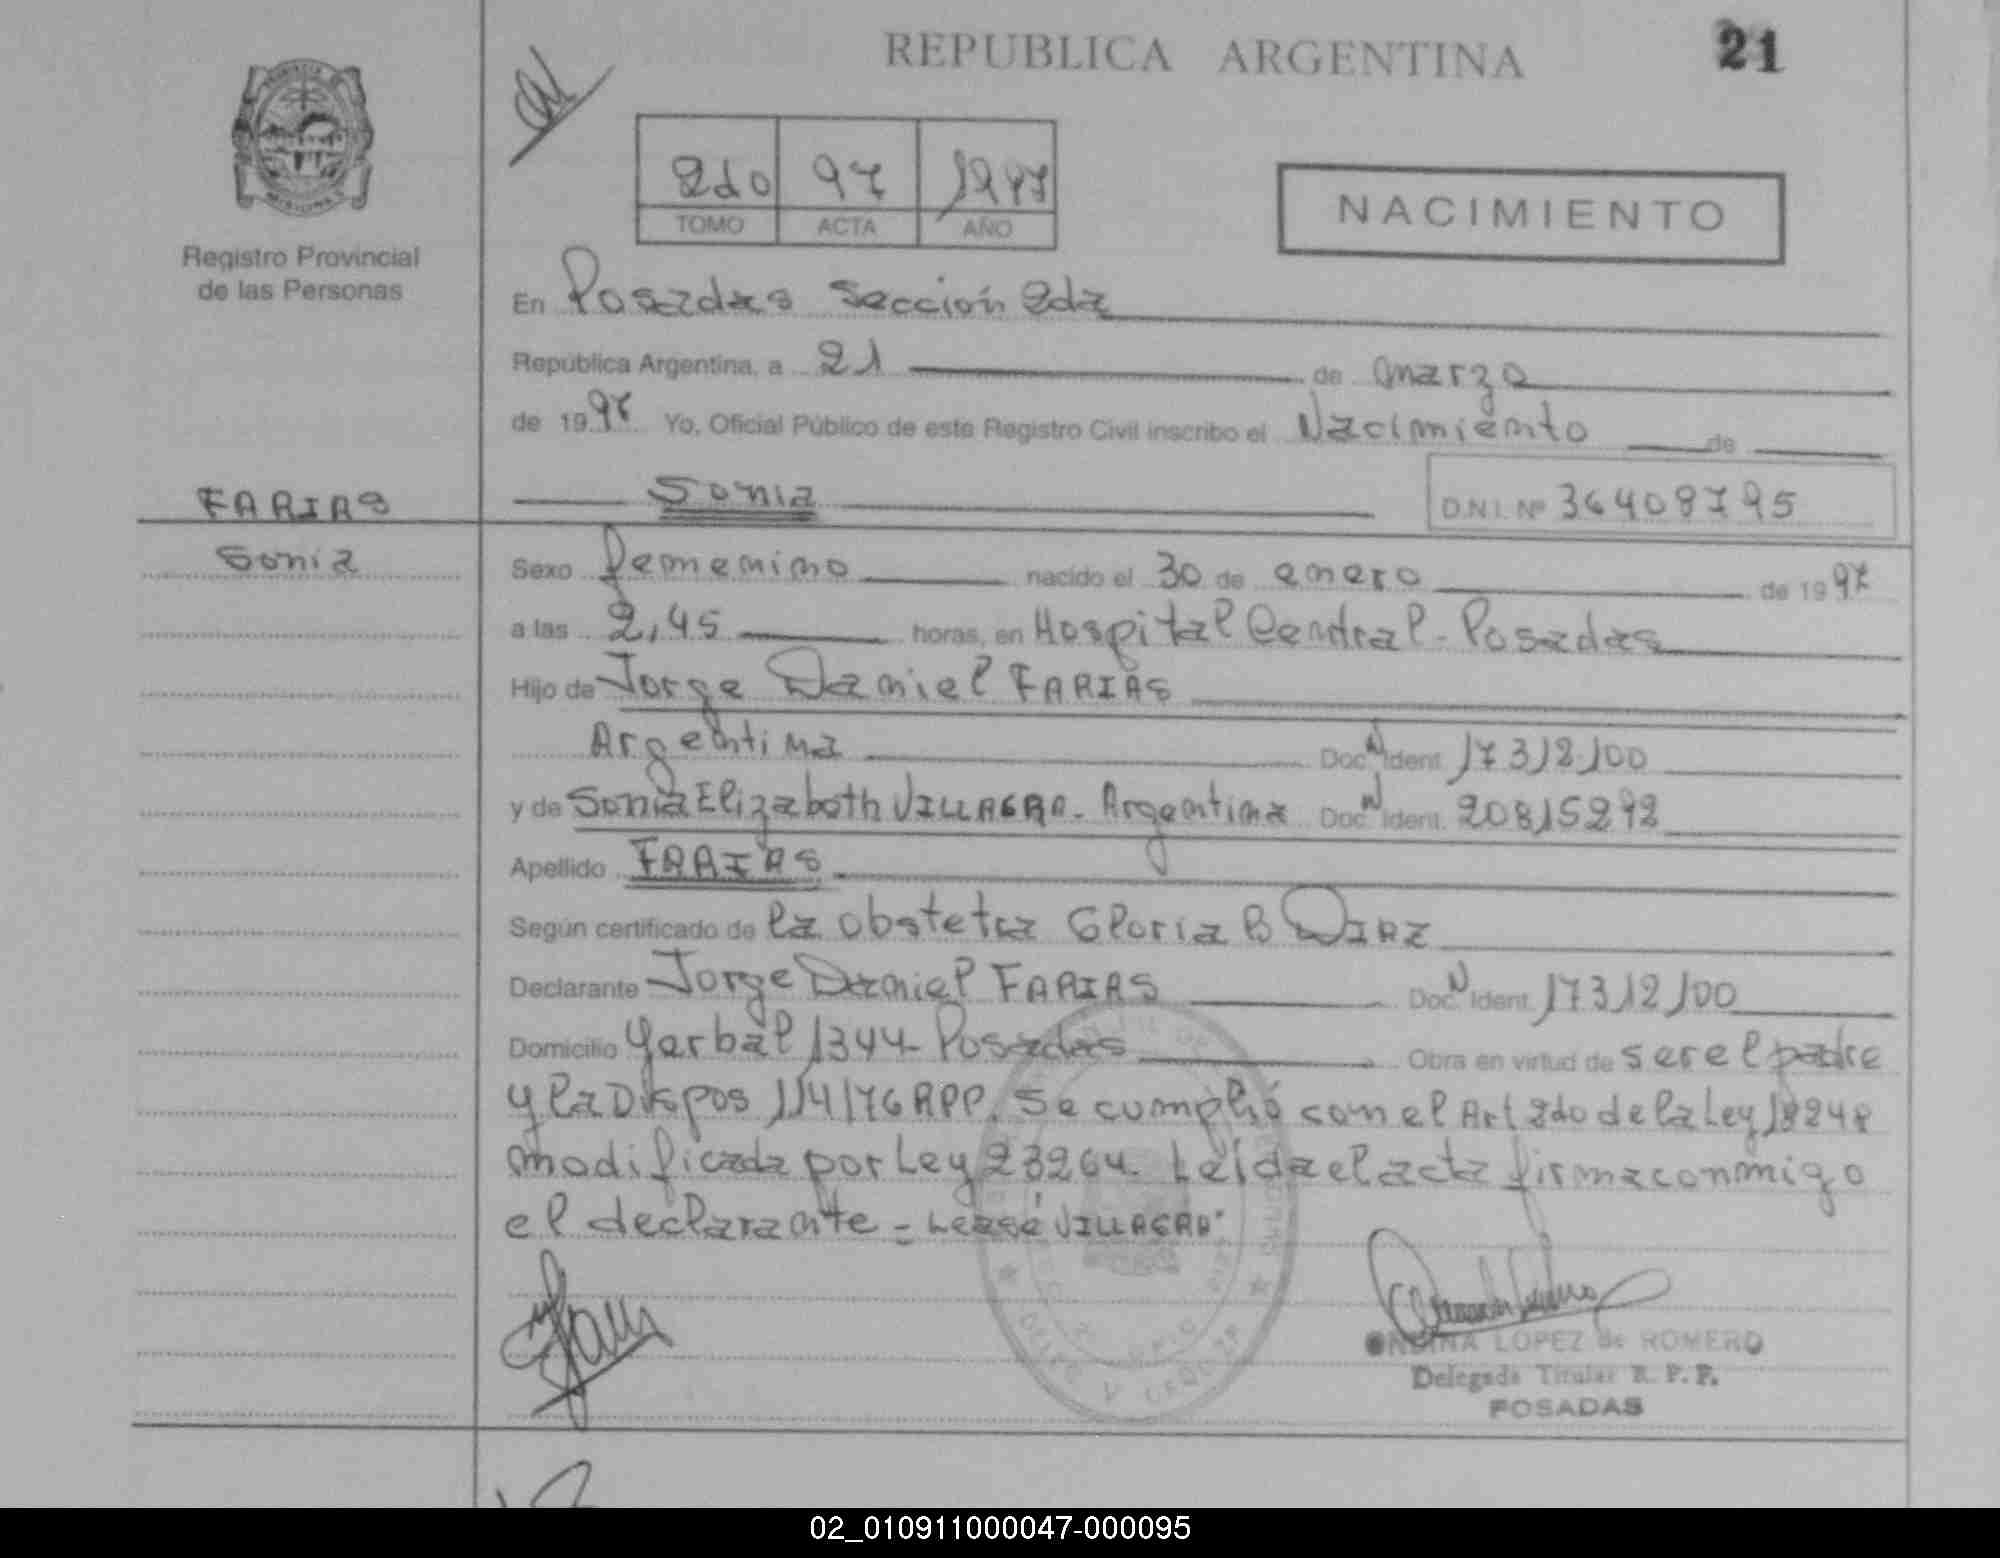 REPUBLICA ARGENTINA
21
2do 97 1997
TOMO ACTA AÑO
NACIMIENTO
Registro Provincial
de las Personas
En Posadas Sección 2da
República Argentina, a 21 de marzo
de 1997 Yo, Oficial Público de este Registro Civil inscribo el Nacimiento de
FARIAS
Sonia
Sonia
D.N.I. Nº 36408795
Sexo femenino nacido el 30 de enero de 1997
a las 2,45 horas, en Hospital Central - Posadas
Hijo de Jorge Daniel FARIAS
Argentina Doc N Ident. 17312100
y de Sonia Elizabeth VILLAGRA - Argentina Doc N Ident. 20815272
Apellido FARIAS
Según certificado de la obstetra Gloria B DIAZ
Declarante Jorge Daniel FARIAS Doc. N Ident. 17312100
Domicilio Yerbal 1344 - Posadas Obra en virtud de ser el padre
y la Dispos 114/76 RPP. Se cumplió con el Art 2do de la Ley 18248
modificada por Ley 23264. Leída el acta firma conmigo
el declarante - Leasé VILLAGRA"
ONDINA LOPEZ de ROMERO
Delegada Titular R. P. P.
POSADAS
02_010911000047-000095